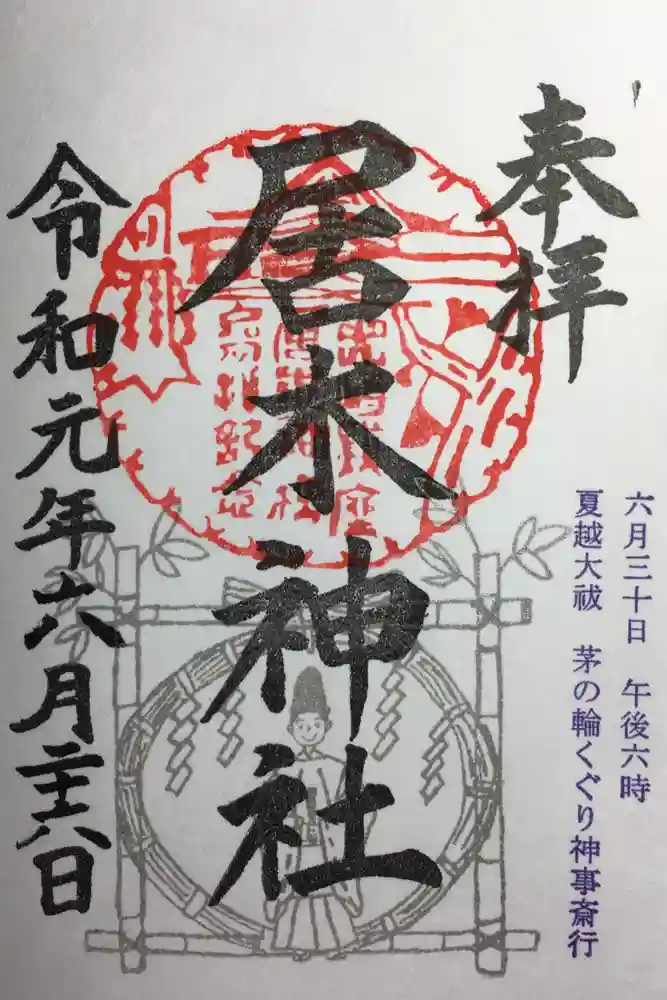 奉拝
六月三十日　午後六時
夏越大祓　茅の輪くぐり神事斎行
居木神社
令和元年六月二十八日